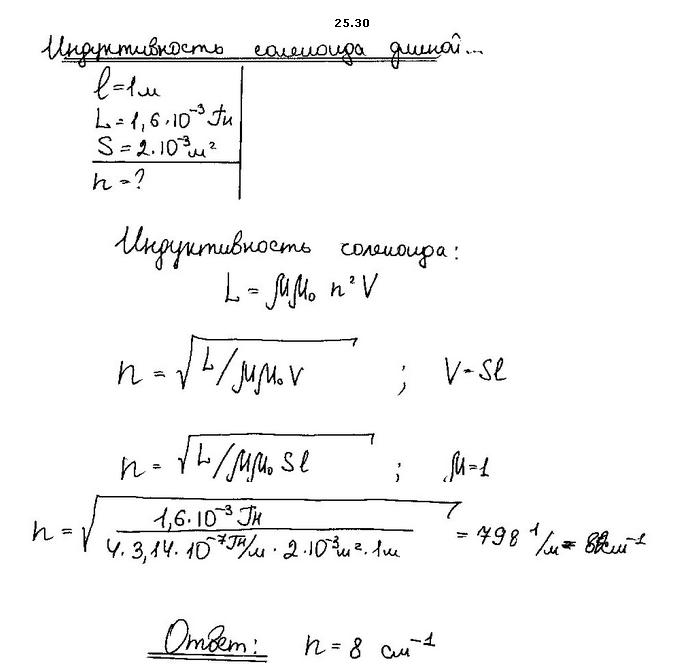 25.30
Индуктивность соленоида длиной...
l=1м
L=1,6·10⁻³ Гн
S=2·10⁻³м²
n=?
Индуктивность соленоида:
L = μμ₀ n² V
n = √L/μμ₀V ; V=Sl
n = √L/μμ₀Sl ; μ=1
n = √1,6·10⁻³ Гн / 4·3,14·10⁻⁷Гн/м · 2·10⁻³м²·1м = 798 1/м = 8 см⁻¹
Ответ: n = 8 см⁻¹